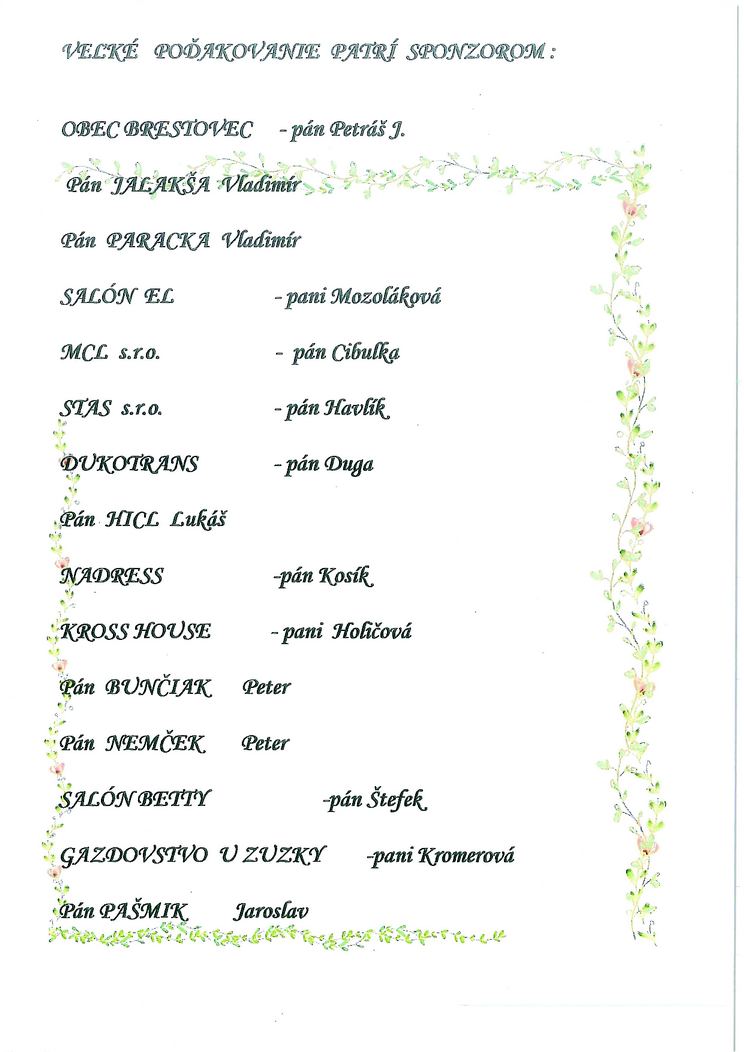 VEĽKÉ POĎAKOVANIE PATRÍ SPONZOROM :
OBEC BRESTOVEC - pán Petráš J.
Pán JALAKŠA Vladimír
Pán PARACKA Vladimír
SALÓN EL - pani Mozoláková
MCL s.r.o. - pán Cibulka
STAS s.r.o. - pán Havlík
DUKOTRANS - pán Duga
Pán HICL Lukáš
NADRESS -pán Kosík
KROSS HOUSE - pani Holičová
Pán BUNČIAK Peter
Pán NEMČEK Peter
SALÓN BETTY -pán Štefek
GAZDOVSTVO U ZUZKY -pani Kromerová
Pán PAŠMIK Jaroslav